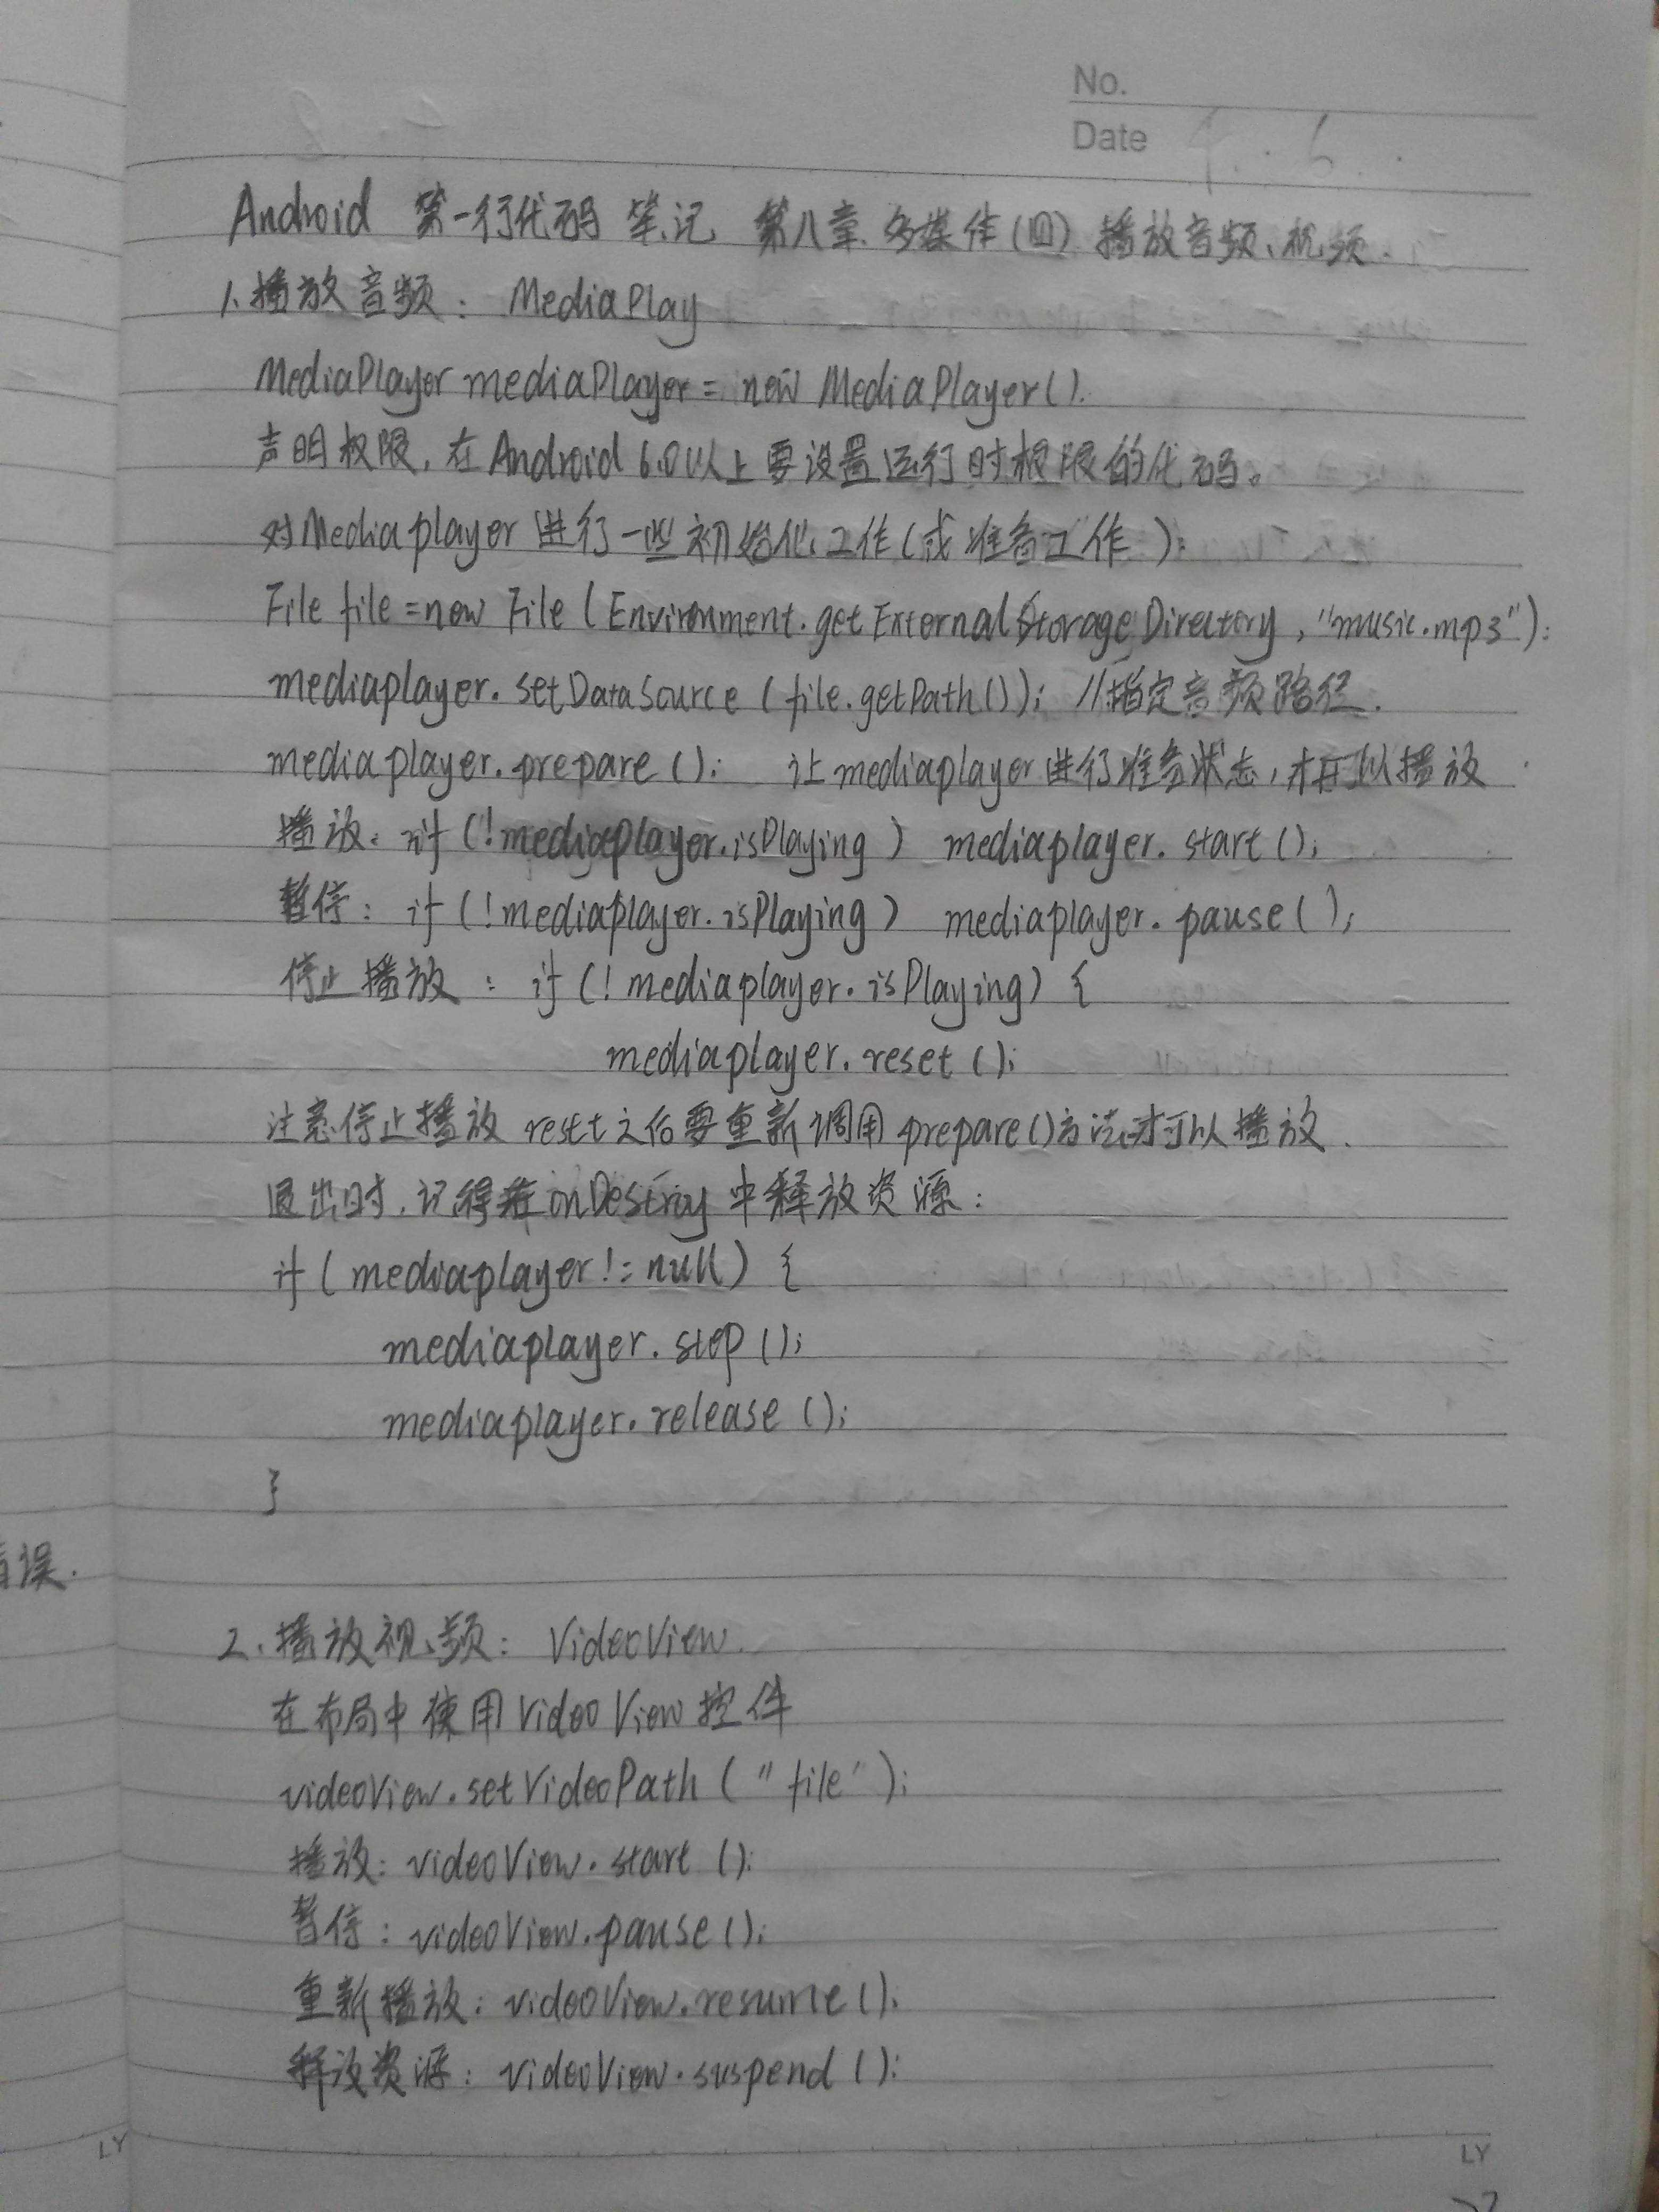 No.
Date 4.6.
Android 第一行代码 笔记 第八章 多媒体(四) 播放音频、视频.
1、播放音频: MediaPlay
MediaPlayer mediaPlayer = new MediaPlayer().
声明权限, 在Android 6.0以上要设置运行时权限的代码。
对Mediaplayer 进行一些初始化工作(或准备工作):
File file = new File (Environment.getExternalStorageDirectory, "music.mp3");
mediaplayer.setDataSource (file.getPath()); //指定音频路径.
mediaplayer.prepare (); 让mediaplayer进行准备状态, 才可以播放
播放: if (!mediaplayer.isPlaying) mediaplayer.start();
暂停: if (!mediaplayer.isPlaying) mediaplayer.pause();
停止播放: if (! mediaplayer.isPlaying) {
mediaplayer.reset ();
注意停止播放 reset之后要重新调用prepare()方法才可以播放.
退出时, 记得在onDestroy中释放资源:
if (mediaplayer != null) {
mediaplayer.stop ();
mediaplayer.release ();
}
误.
2、播放视频: VideoView.
在布局中使用VideoView控件
videoView.setVideoPath ("file");
播放: videoView.start ();
暂停: videoView.pause ();
重新播放: videoView.resume ();
释放资源: videoView.suspend ();
LY
LY